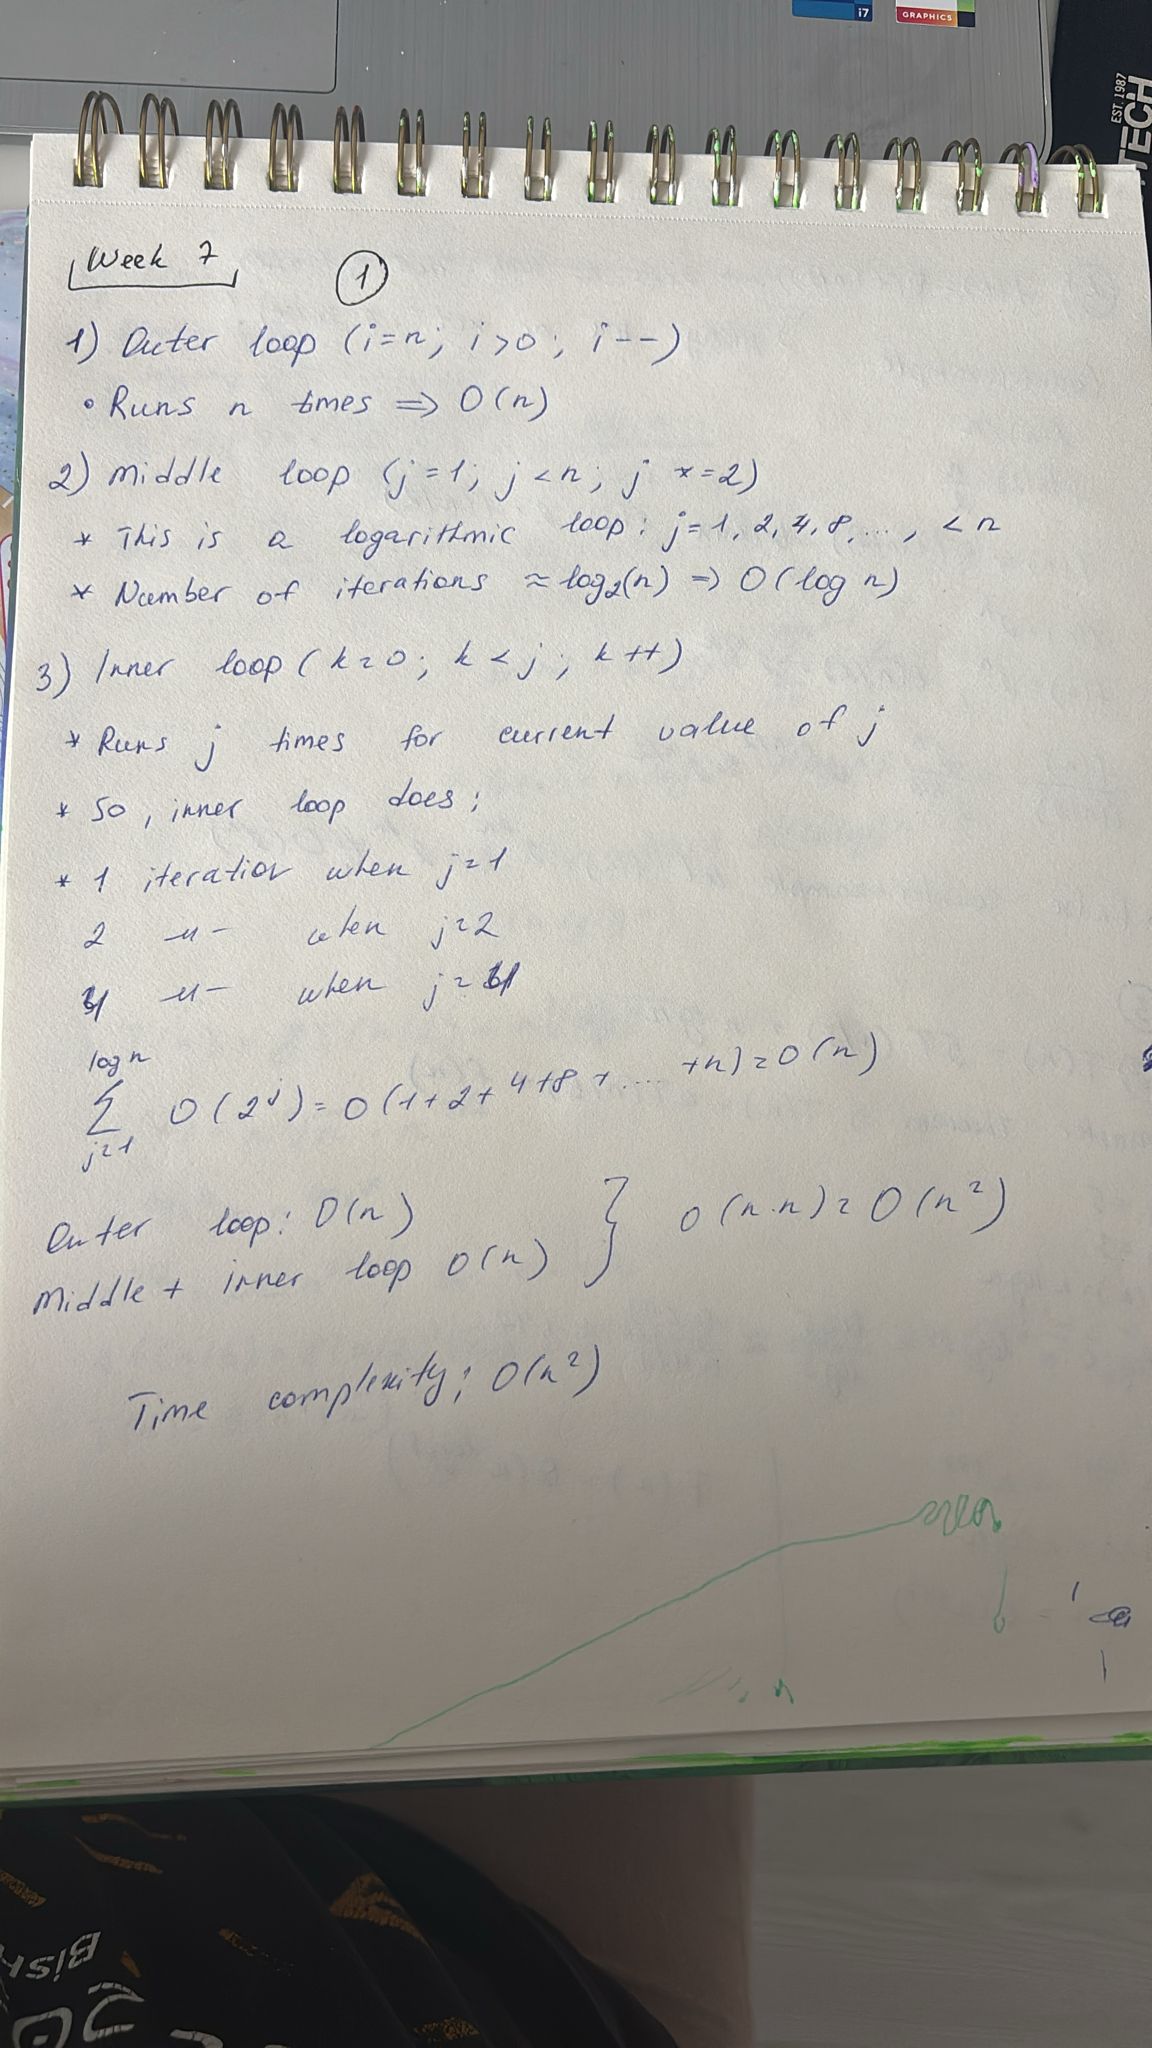 i7
GRAPHICS
EST. 1987
TECH
Week 7
1
1) Outer loop (i=n; i>0; i--)
• Runs n times => O(n)
2) Middle loop (j=1; j<n; j *=2)
* This is a logarithmic loop: j=1, 2, 4, 8, ..., <n
* Number of iterations ≈ log₂(n) => O(log n)
3) Inner loop (k=0; k<j; k++)
* Runs j times for current value of j
* So, inner loop does:
* 1 iteration when j=1
2 -"- when j=2
4 -"- when j=4
log n
∑ O(2^j) = O(1+2+4+8+....+n) = O(n)
j=1
Outer loop: O(n)
Middle + inner loop O(n) } O(n·n) = O(n²)
Time complexity: O(n²)